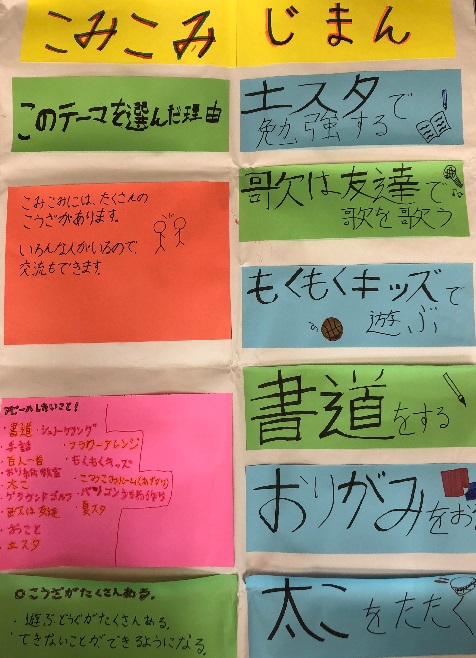 こみこみじまん
このテーマを選んだ理由
こみこみには、たくさんの
こうざがあります。
いろんな人がいるので、
交流もできます。
アピールしたいこと!
・書道
・手話
・百人一首
・おり紙教室
・太こ
・グラウンドゴルフ
・歌欠は友達
・おこと
・土スタ
・フラワーアレンジ
・もくもくキッズ
・夏スタ
◎こうざがたくさんある。
・遊ぶどうぐがたくさんある。
・できないことができるようになる。
土スタで
勉強する
歌欠は友達で
歌を歌う
もくもくキッズで
遊ぶ
書道をする
おりがみをお
太こをたたく